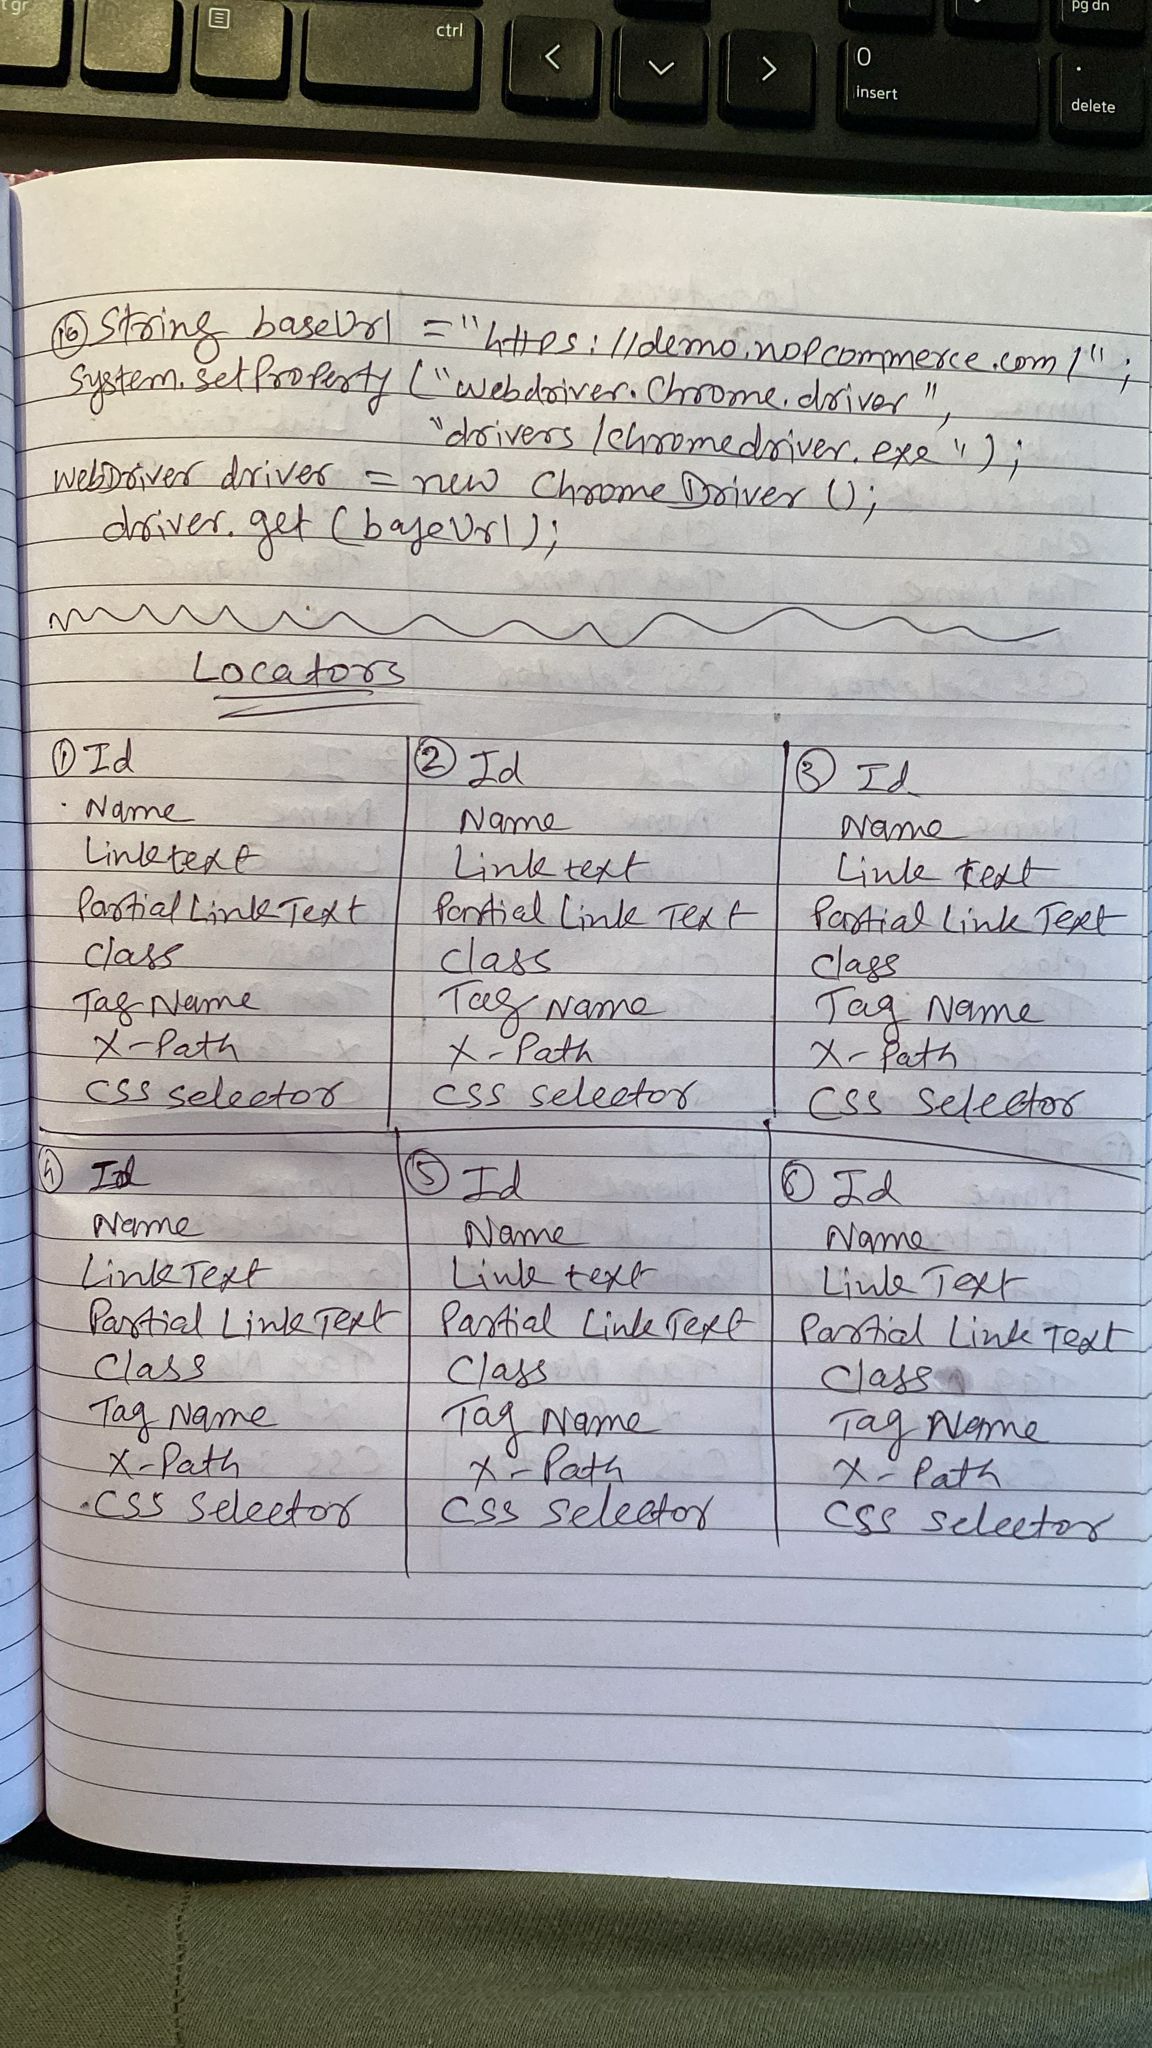 t gr
ctrl
pg dn
0
insert
.
delete
16 String baseUrl = "https://demo.nopcommerce.com/";
System.setProperty ("webdriver.Chrome.driver",
"drivers/chromedriver.exe");
WebDriver driver = new Chrome Driver ();
driver.get (baseUrl);
Locators
1 Id
Name
Linktext
Partial Link Text
Class
Tag Name
X-Path
CSS selector
2 Id
Name
Link text
Partial Link Text
Class
Tag Name
X-Path
CSS selector
3 Id
Name
Link text
Partial Link Text
Class
Tag Name
X-Path
CSS selector
4 Id
Name
Link Text
Partial Link Text
Class
Tag Name
X-Path
CSS selector
5 Id
Name
Link text
Partial Link Text
Class
Tag Name
X-Path
CSS selector
6 Id
Name
Link Text
Partial Link Text
Class
Tag Name
X-Path
CSS selector